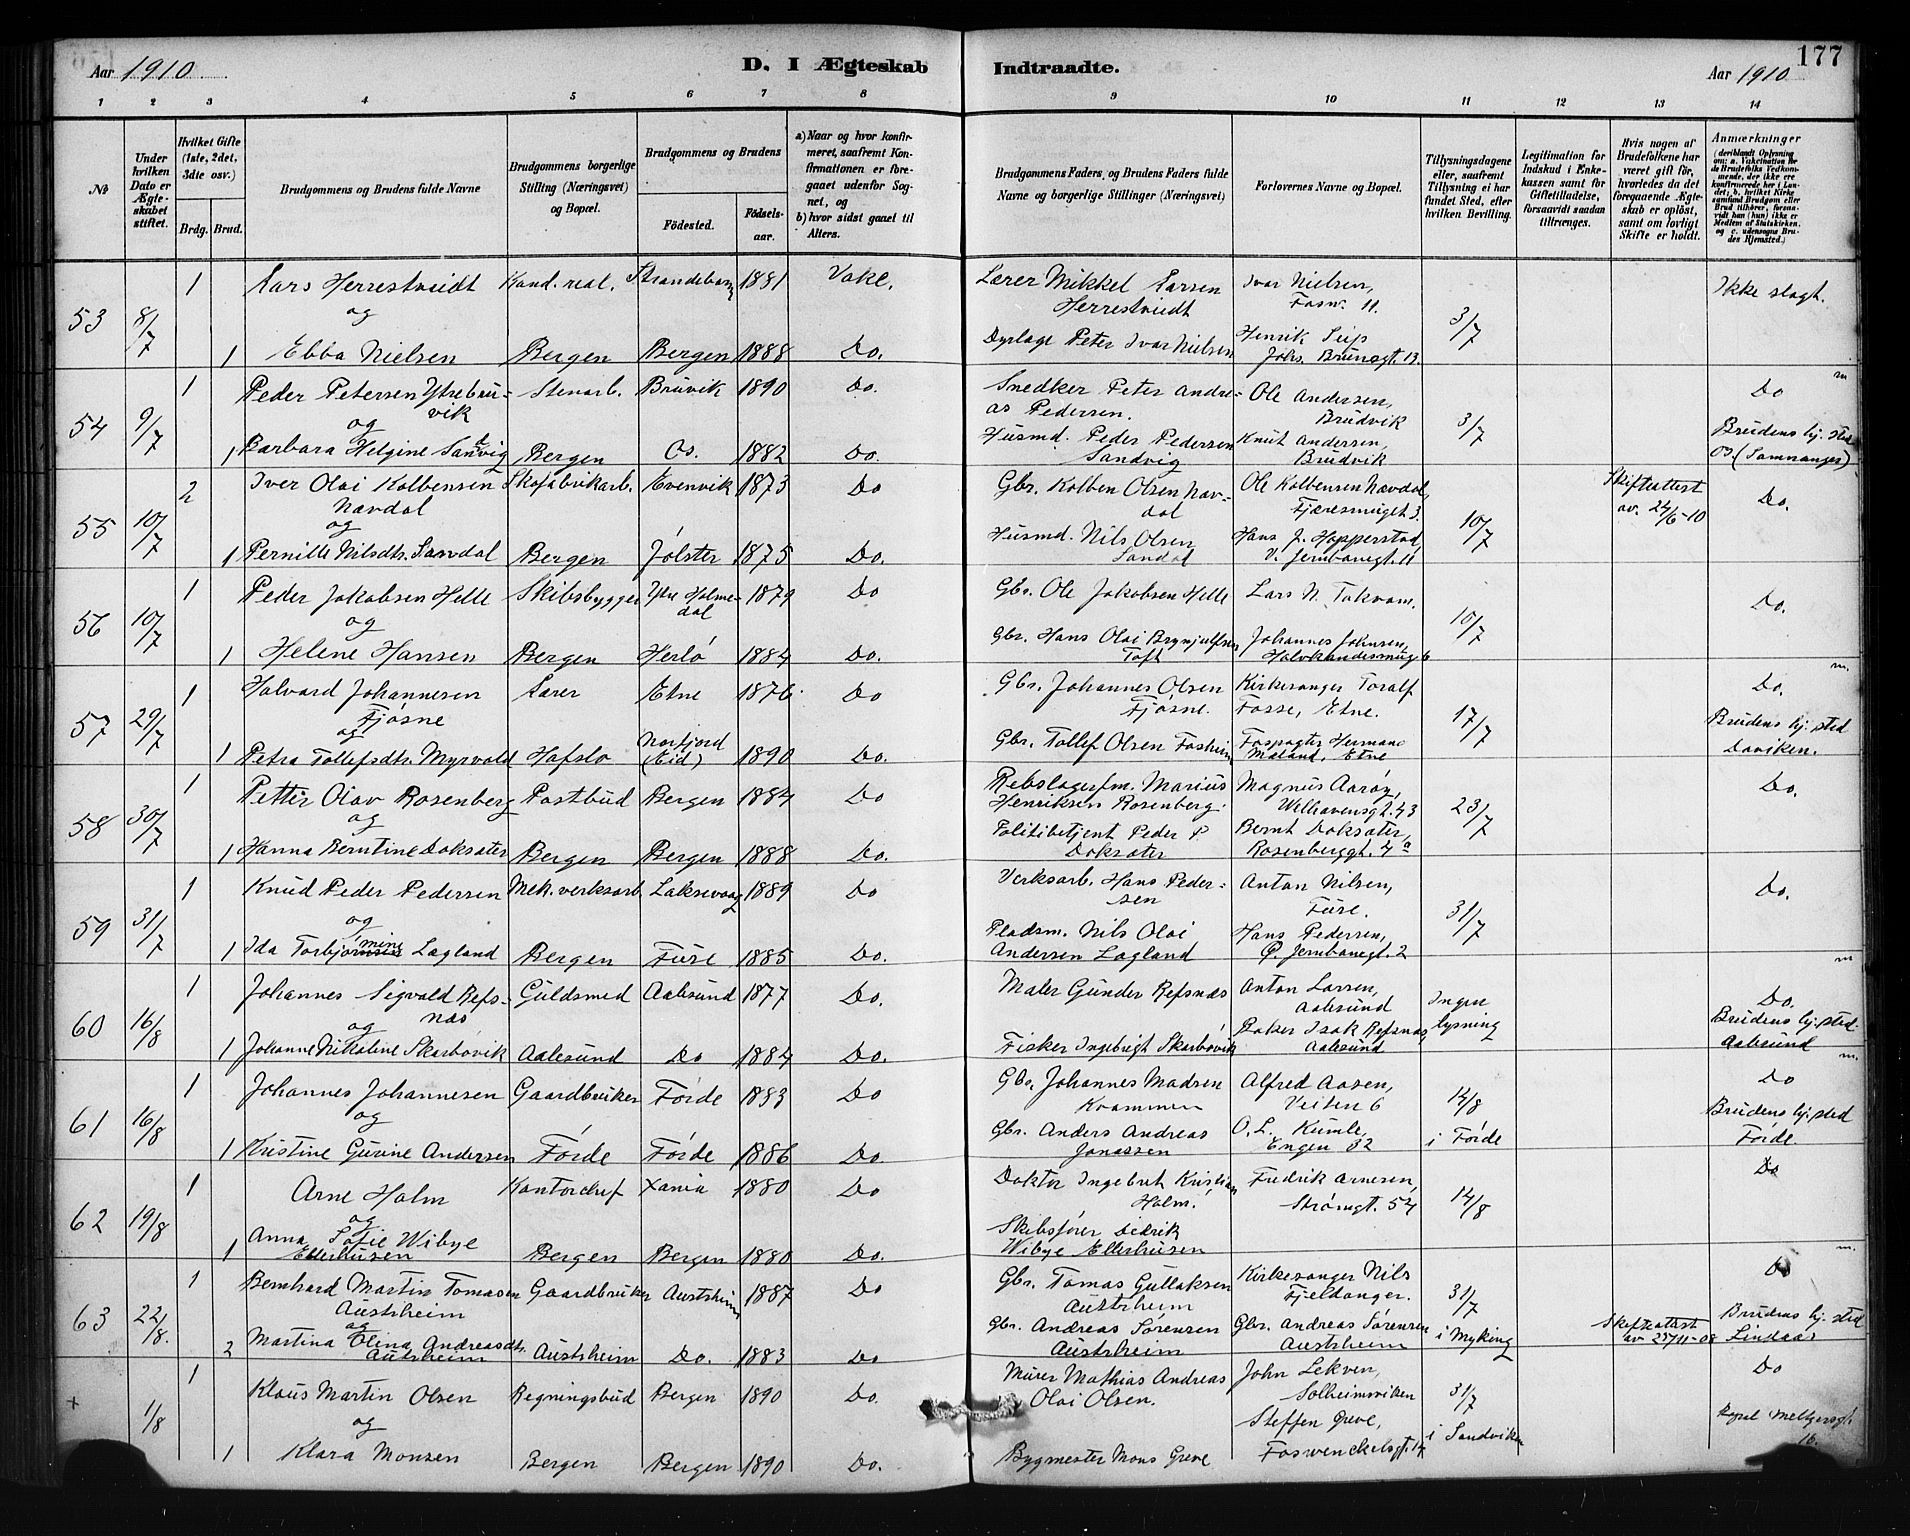 177
Aar 1910
D. I Ægteskab Indtraadte.
Aar 1910
1 2 3 4 5 6 7 8 9 10 11 12 13 14
No
Under hvilken Dato er Ægteskabet stiftet.
Hvilket Gifte (1ste, 2det, 3die osv.)
Brdg. Brud.
Brudgommens og Brudens fulde Navne
Brudgommens borgerlige Stilling (Næringsvei) og Bopæl.
Brudgommens og Brudens
Fødested.
Fødselsaar.
a) Naar og hvor konfirmeret, saafremt Konfirmationen er foregaaet udenfor Sognet, og
b) hvor sidst gaaet til Alters.
Brudgommens Faders og Brudens Faders fulde Navne og borgerlige Stillinger (Næringsvei)
Forlovernes Navne og Bopæl.
Tillysningsdagene eller, saafremt Tillysning ei har fundet Sted, efter hvilken Bevilling.
Legitimation for Indskud i Enkekassen samt for Giftetilladelse, forsaavidt saadan tiltrænges.
Hvis nogen af Brudefolkene har været gift før, hvorledes da det foregaaende Ægteskab er opløst, samt om lovligt Skifte er holdt.
Anmærkninger (deriblandt Oplysning om: a. Vakcination for de Brudefolks Vedkommende, der ikke ere konfirmerede her i Landet; b. hvilket Kirkesamfund Brudgom eller Brud tilhører, forsaavidt han (hun) ikke er Medlem af Statskirken, og c. udensogns Brudes Hjemsted.)
53 8/7 1 Lars Herrestveidt Kand. real. Strandebarm 1881 Vake. Lærer Mikkel Larsen Ivar Nielsen, Ikke slagt.
og Herrestveidt Fosw. 11. 3/7
1 Ebba Nielsen Bergen Bergen 1888 Do. Dyrlæge Peter Ivar Nielsen Henrik
Johs. Brunsgt. 13.
54 9/7 1 Peder Petersen Ytrebruvik Stenarb. Bruvik 1890 Do. Snedker Peter Andreas Pedersen. Ole Andersen, Brudvik 3/7 Do
og
1 Barbara Helgine Sandvig Bergen Os. 1882 Do. Husmd. Peder Pedersen Sandvig Knut Andersen, Brudvik Brudens hj. sted Os (Samnanger)
55 10/7 2 Iver Olai Kolbensen Navdal Skofabrikarb. Evenvik 1873 Do Gbr. Kolben Olsen Navdal Ole Kolbensen Navdal, Fjæresmuget 3. 10/7 Skifteattest av. 24/6-10 Do.
og
1 Pernille Nilsdtr. Sandal Bergen Jølster 1875 Do. Husmd. Nils Olsen Sandal Hans J. Hopperstad, V. Jernbanegt. 11
56 10/7 1 Peder Jakobsen Helle Skibsbygger Ytre Holmedal 1879 Do Gbr. Ole Jakobsen Helle Lars N. Takvam. 10/7 Do.
og
1 Helene Hansen Bergen Herlø 1884 Do. Gbr. Hans Olai Brynjulfsen Toft Johannes Johnsen, Halvkandesmug 6
57 29/7 1 Halvard Johannesen Fjøsne Lærer Etne 1876. Do Gbr. Johannes Olsen Fjøsne. Kirkesanger Toralf Fosse, Etne. 17/7 Do.
og
1 Petra Tollefsdtr. Myrvold Hafslo Norfjord (Eid) 1890 Do. Gbr. Tollef Olsen Foshiem Forpagter Hermann Mæland, Etne Brudens hj. sted Daviken.
58 30/7 1 Petter Olav Rosenberg Postbud Bergen 1884 Do Rebslagerfm. Marius Henriksen Rosenberg. Magnus Aarøy, Welhavensgt. 43 23/7 Do.
og
1 Hanna Berntine Doksater Bergen Bergen 1888 Do. Politibetjent Peder P Doksater Bernt Doksater, Rosenberggt. 4 a
59 31/7 1 Knud Peder Pedersen Mek. verksarb. Laksevaag 1889 Do Verksarb. Hans Pedersen Anton Nilsen, Fuse. 31/7 Do.
og
1 Ida Torbjørmine Lagland Bergen Fuse 1885 Do. Pladsm. Nils Olai Andersen Lagland Hans Pedersen, Ø. Jernbanegt. 2
60 16/8 1 Johannes Sigvald Refsnas Guldsmed Aalesund 1877 Do. Maler Gunder Refsnæs Anton Larsen, Aalesund Ingen lysning Do.
og
1 Johanne Nikoline Skarbøvik Aalesund Do 1884 Do. Fisker Ingebrigt Skarbøvik Baker Isak Refsnas, Aalesund Brudens hj. sted. Aalesund
61 16/8 1 Johannes Johannesen Gaardbruker Førde 1883 Do Gbr. Johannes Madsen Kvammen Alfred Aasen, Veiten 6 14/8 Do
og
1 Kristine Gurine Andersen Førde Førde 1886 Do. Gbr. Anders Andreas Jonassen O. L. Kumle, Engen 32 i Førde Brudens hj. sted Førde
62 19/8 1 Arne Holm Kontorchef Xania 1880 Do Doktor Ingebret Kristian Holm. Fredrik Arnesen, Strømgt. 54 14/8 Do
og
1 Anna Sofie Wibye Ellerhusen Bergen Bergen 1880 Do. Skibsfører Didrik Wibye Ellerhusen
63 22/8. 1 Bernhard Martin Tomasen Austrheim Gaardbruker Austrheim 1887 Do Gbr. Tomas Gullaksen Austrheim Kirkesanger Nils Fjeldanger. 31/7 Do
og
2 Martina Elina Andreasdtr. Austrheim Austrheim Do. 1883 Do Gbr. Andreas Sørensen Austrheim Gbr. Andreas Sørensen Austrheim i Myking Skifteattest av 25/11-08 Brudens hj. sted Lindaas
+ 1/8 1 Klaus Martin Olsen Regningsbud Bergen 1890 Do. Murer Mathias Andreas Olai Olsen. John Lekven, Solheimsviken 31/7 Do
og
1 Klara Monsen Bergen Bergen 1890 Do. Bygmester Mons Greve Steffen Greve, Foswenckelsgt. 14 i Sandviken Meltzersgt. 16.